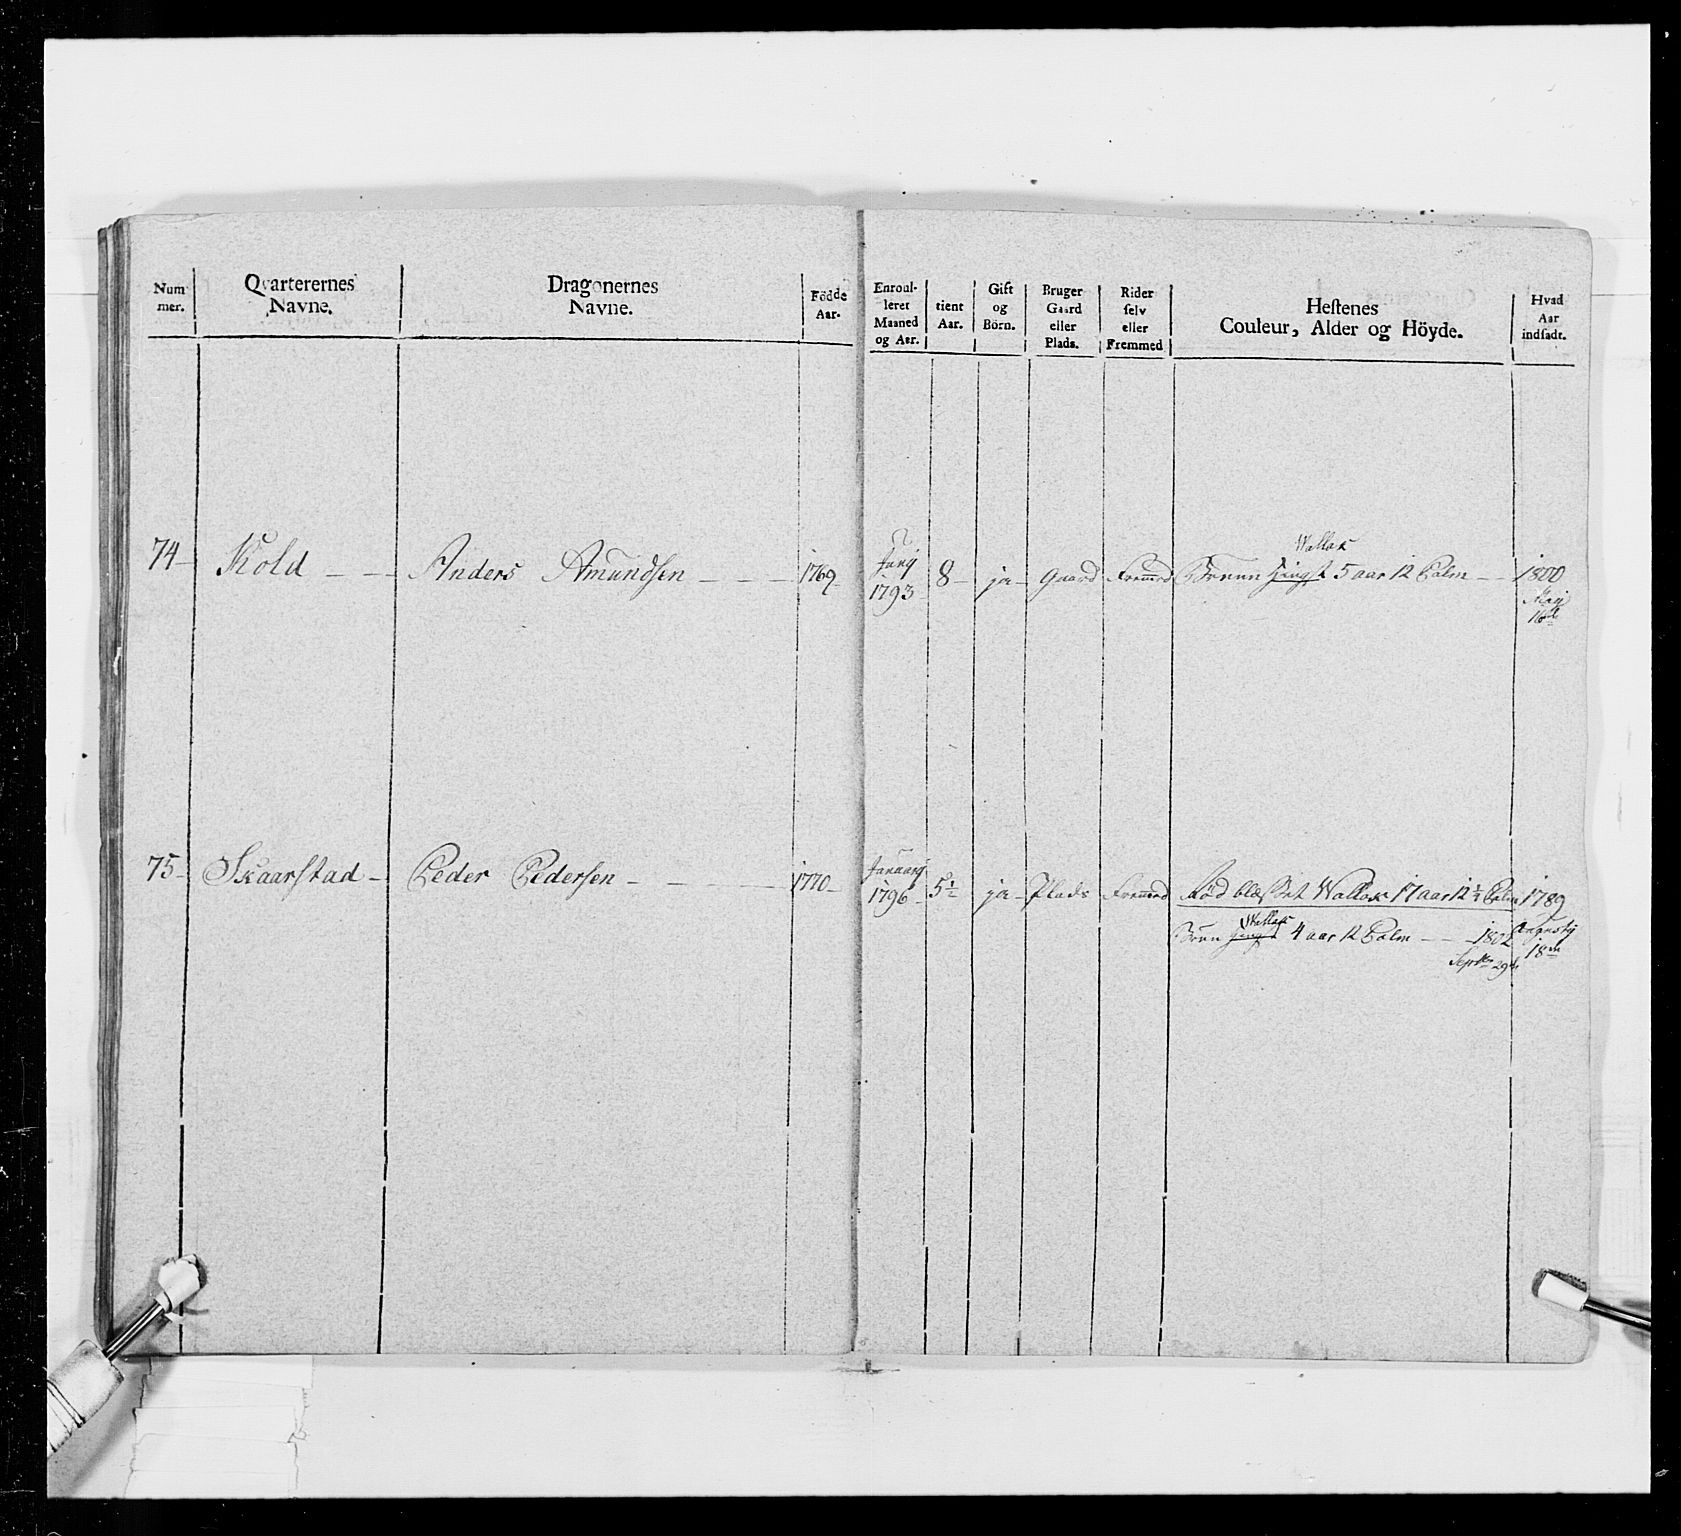 Num
mer.
Qvarterernes
Navne.
Dragonernes
Navne.
Födde
Aar.
Enroul-
leret
Maaned
og Aar.
tient
Aar.
Gift
og
Börn.
Bruger
Gaard
eller
Plads.
Rider
selv
eller
Fremmed
Hestenes
Couleur, Alder og Höyde.
Hvad
Aar
indsadt.
74 Kold Anders Amundsen 1769 Junij 1793 8 ja Gaard Fremed Bruun Hingst Wallak 5 aar 12 Palm 1800
16de
75 Skaarstad Peder Pedersen 1770 Januarij 1796 5½ ja Plads Fremed Rød blesset Wallak 17 aar 12 ¼ Palm 1789
Augustij
18de
Brun Hingst Wallak 4 aar 12 Palm 1802
Septbr 29de